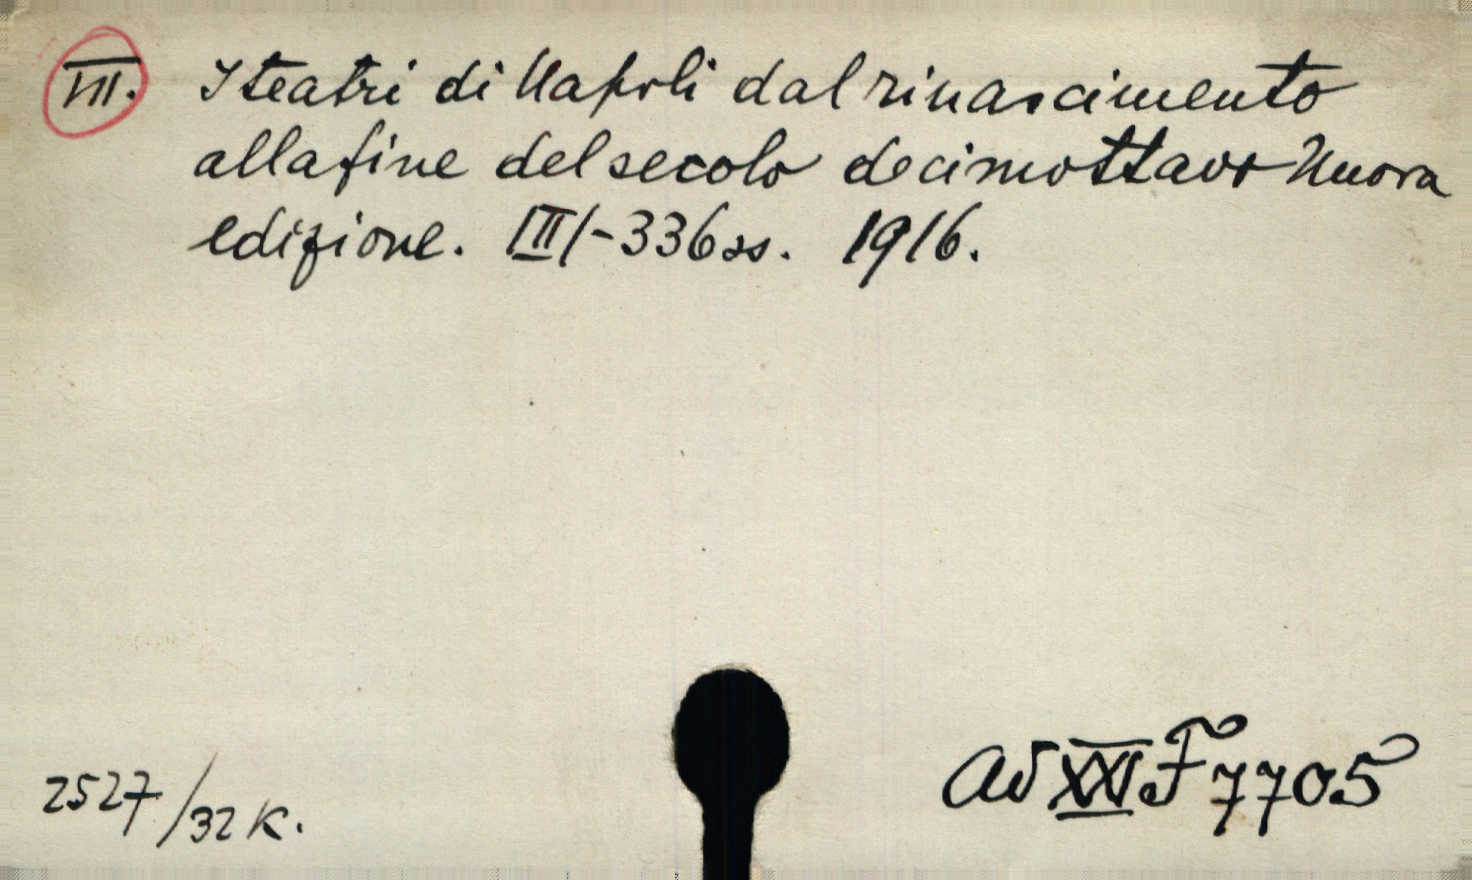 VII. I teatri di Napoli dal rinascimento
alla fine del secolo decimottavo Nuova
edizione. |II|-336 ss. 1916.
2527/32 K.
Ad XXI F 7705